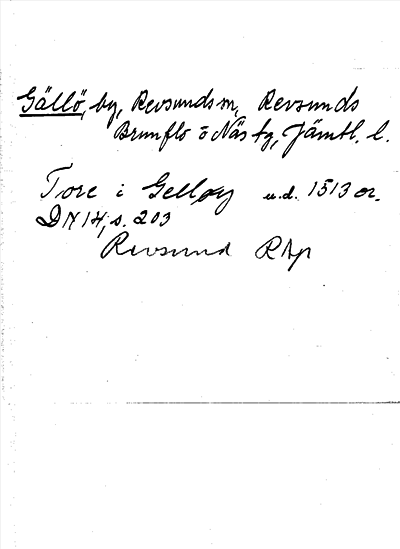 Gällö, by, Revsunds sn, Revsunds
Brunflo o Näs tg, Jämtl. l.
Tore i Gelløy u.d. 1513 or.
DN 14, s. 203
Revsund Rhp